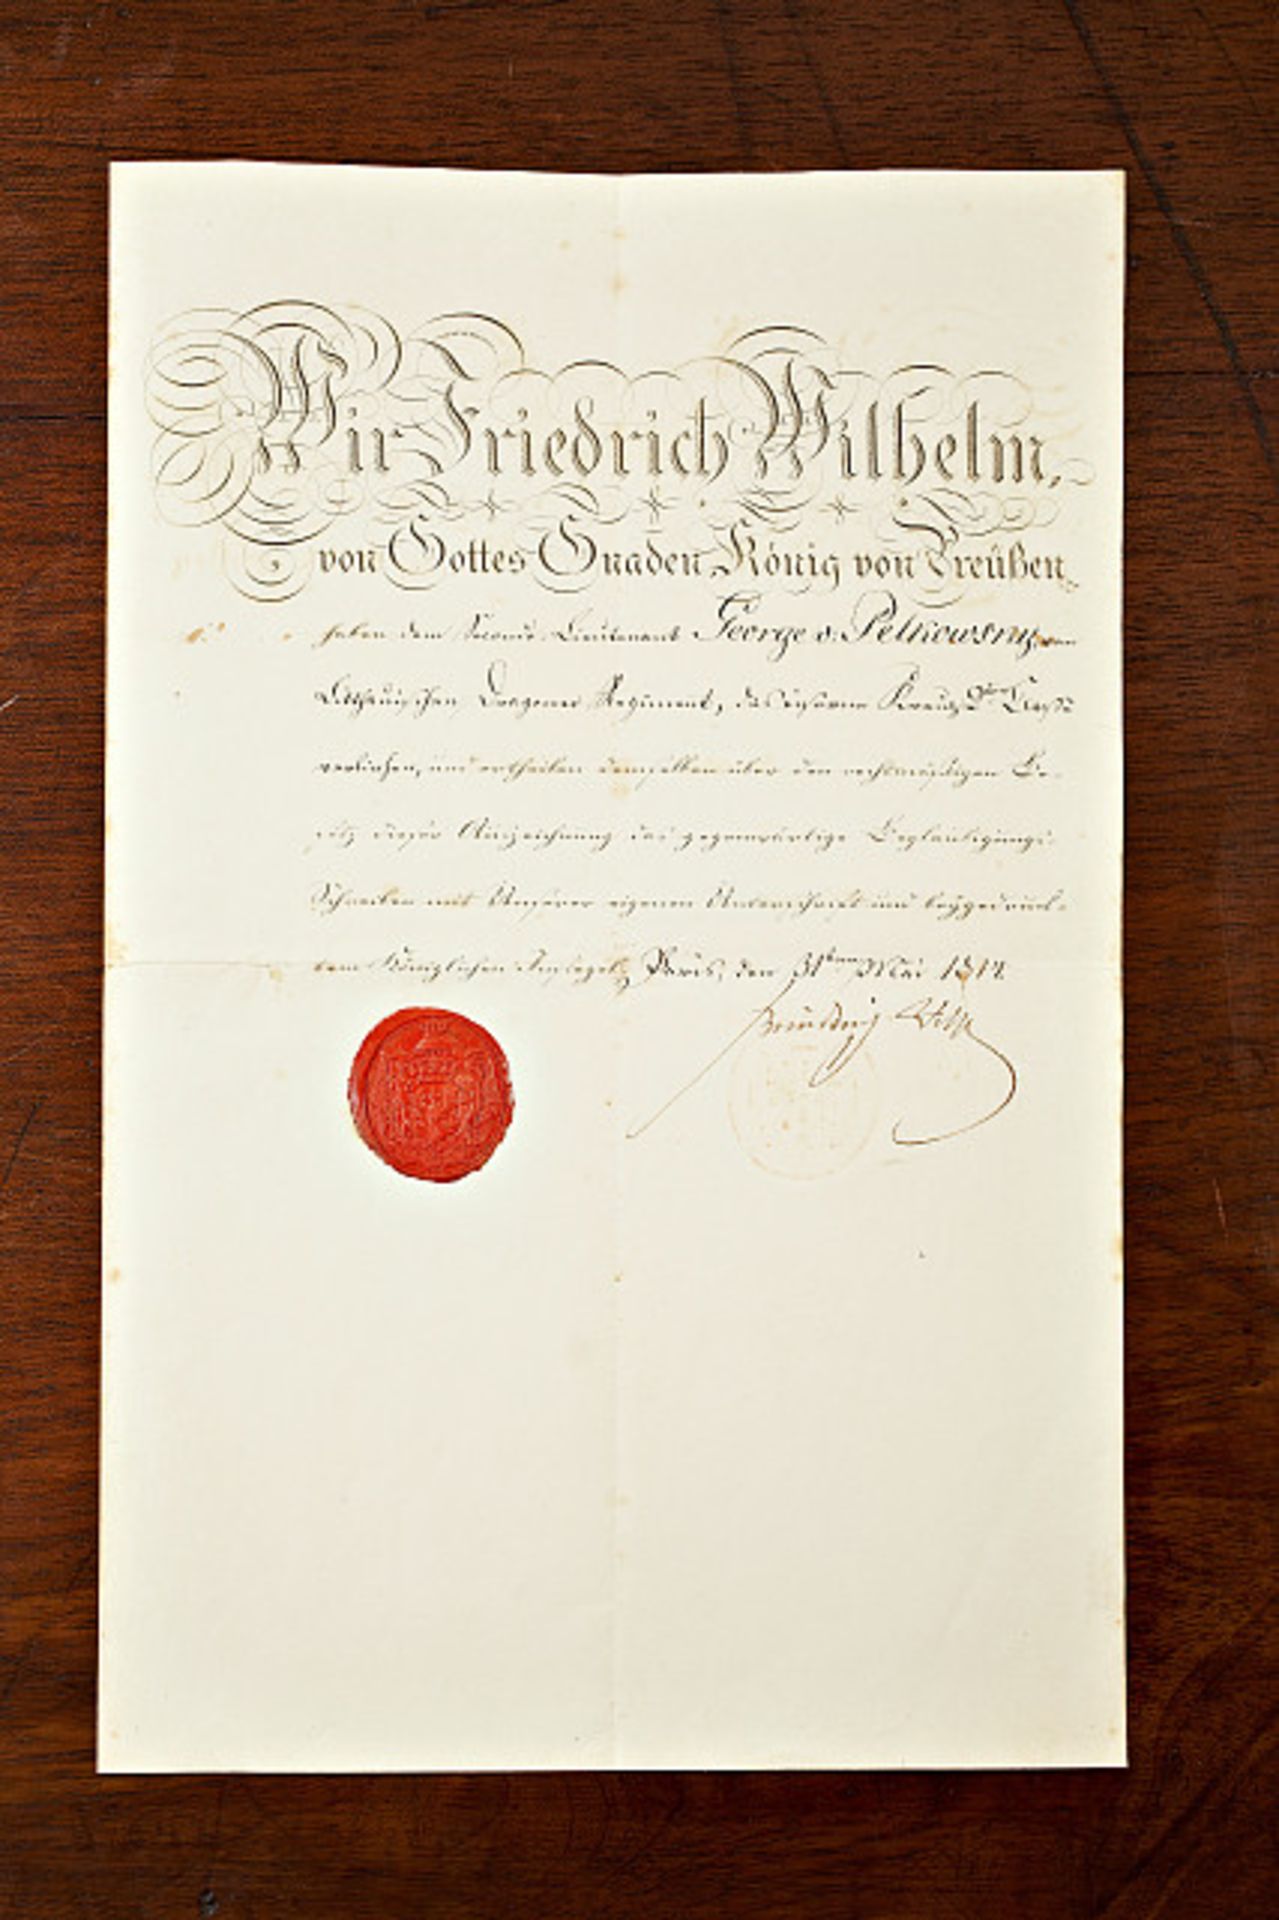 Wir Friedrich Wilhelm,
von Gottes Gnaden König von Preußen
haben dem Seconde-Lieutenant George v. Pelkowsky vom
Litthauischen Dragoner Regiment, das eiserne Kreuz 2ter Classe
verliehen, und ertheilen demselben über den rechtmäßigen Be-
sitz dieser Auszeichnung das gegenwärtige Beglaubigungs-
Schreiben mit Unserer eigenen Unterschrift und beygedruck-
tem Königlichen Insiegel. Paris, den 31ten Mai 1814.
Friedrich Wilh